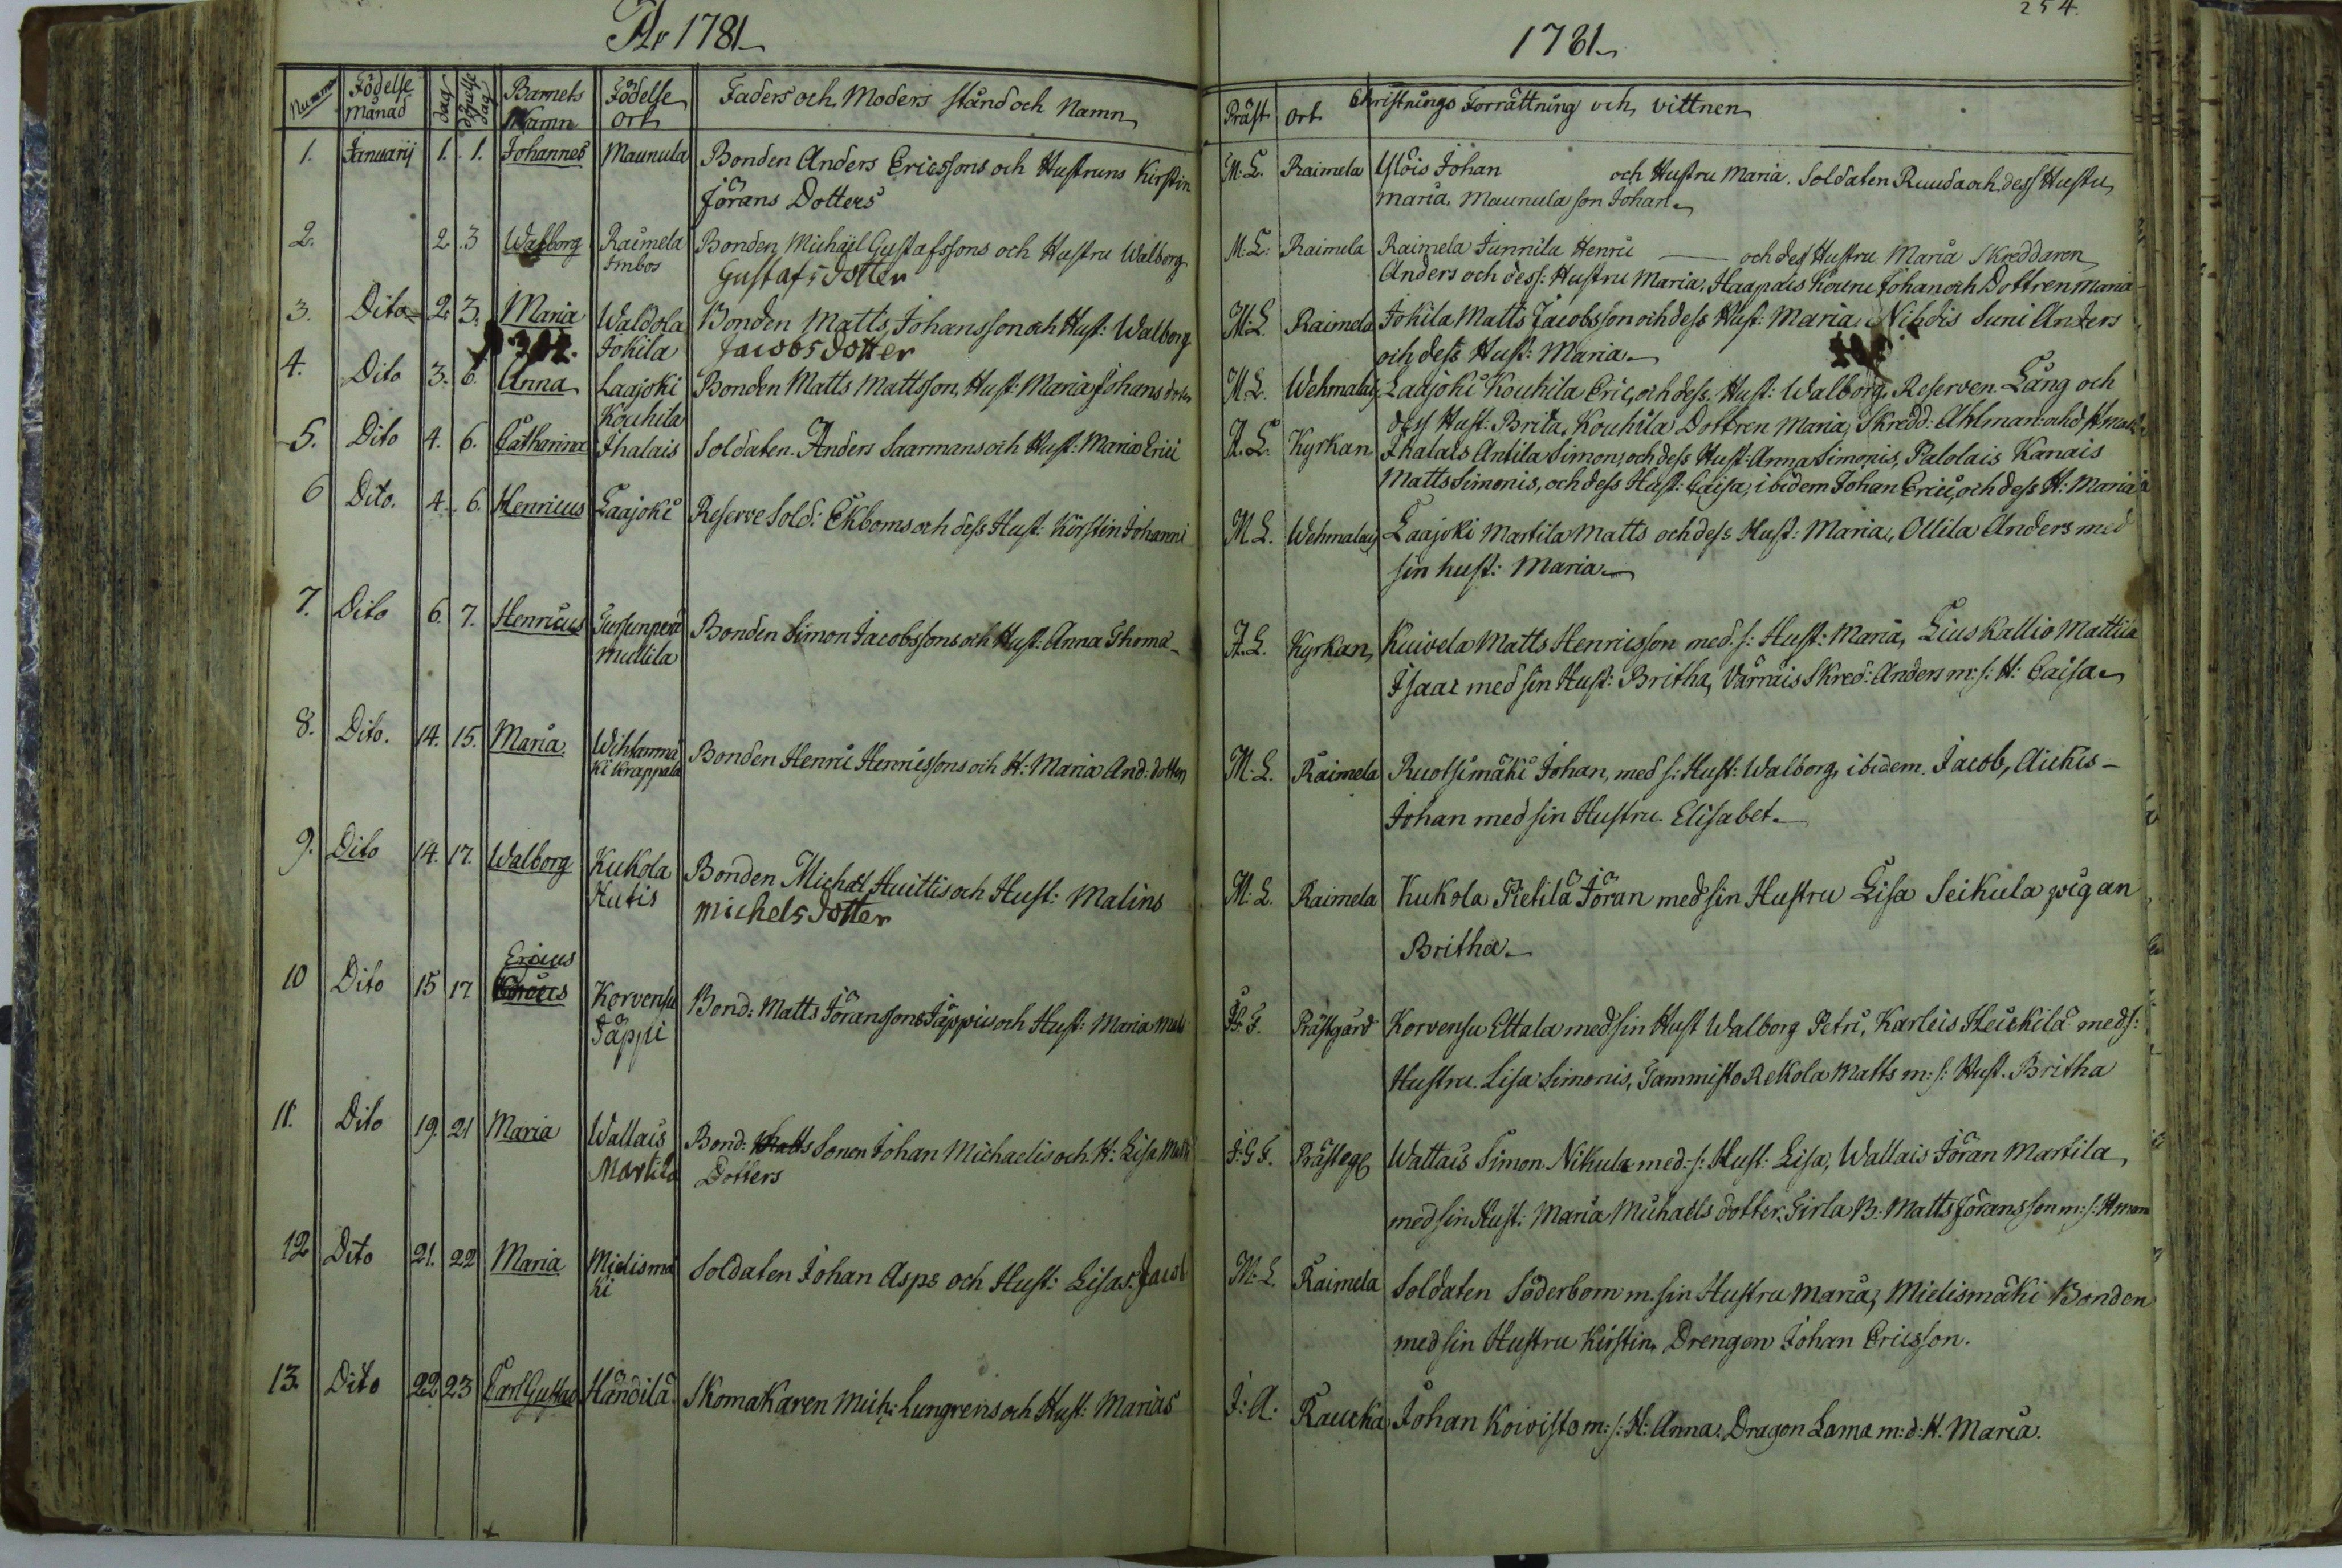 År 1781
Nummer Födelse månad dag döpelse dag Barnets Namn Födelse ort Faders och Moders stånd och Namn
1. Januarij 1. 1. Johannes Maunula Bonden Anders Ericssons och Hustruns Kirstin
Jörans Dotters
2. 2. 3 Walborg Raimela Bonden Michäel Gustafssons och Hustru Walborg
Imbos Gustafs dotter
3. Dito 2. 3. Maria Waldola Bonden Matts Johansson och Hust: Walborg
Jokila Jacobs dotter
4. Dito 3. 6. Anna Laajoki Bonden Matts Mattsson, Hust: Maria Johans doter
Kouhila
5. Dito 4. 6. Catharina Ihalais Soldaten Anders Saarmans och Hust: Maria Erici
6 Dito. 4. 6. Henricus Laajoki Reserve Sold: Ekboms och dess Hust: Kirstin Johanni
7. Dito 6. 7. Henricus Tursunperä Bonden Simon Jacobssons och Hust: Anna Thomæ
Mullila
8. Dito. 14. 15. Maria Wihtammä Bonden Henric Henricssons och H: Maria And: dotter
ki Krappala
9. Dito 14. 17. Walborg Kukola Bonden Michæl Huittis och Hust: Malins
Hutis Michels dotter
Ericus
10 Dito 15 17 Korvensu Bond: Matts Jöranssons Jäppis och Hust: Maria
Jäppi
11. Dito 19. 21 Maria Wallais Bond: Matts Sonen Johan Michaelis och H: Lisa
Martila Dotters
12 Dito 21. 22 Maria Mielismä Soldaten Johan Asps och Hust: Lisas Jacob
ki
13. Dito 22 23 Carl Gustav Händilä Skomakaren Mich: Lungrens och Hust: Marias
254.
1781
Präst Ort Christnings Förrättning och vittnen
M: L. Raimela Ylöis Johan och Hustru Maria. Soldaten Ruuda och dess Hustu
Maria. Maunula son Johan
M: L: Raimela Raimela Junnila Henric och des Hustru Maria Skreddaren
Anders och dess: Hustru Maria. Haapais Kouru Johan och Dottren Maria
M: L Raimela Jokila Matts Jacobsson och dess Hust: Maria Nihdis Suni Anders
och dess Hust: Maria
M L. Wehmalais Laajoki Kouhila Eric, och dess Hust: Walborg. Reserven Lång och
dess Hust: Brita, Kouhila Dottren Maria, Skredd: Ahlman och d H
A. L. Kyrkan Ihalais Antila Simon, och dess Hust: Anna Simonis, Palolais Kanais
Matts Simonis, och dess Hust: Caisa, ibidem Johan Erici, och dess H: Maria
M L. Wehmalais Laajoki Martila Matts och dess Hust: Maria, Ollila Anders med
sin hust: Maria
A. L. Kyrkan Kuivela Matts Henricsson med s: Hust: Maria, Lius Kallio Mattila
Isaac med sin Hust: Britha, Värräis Skred: Anders m: s: H: Caisa
M: L. Raimela Ruotsimäki Johan, med s: Hust: Walborg, ibidem Jacob, Aickis
Johan med sin Hustru Elisabet
M: L. Raimela Kukola Pietilä Jöran med sin Hustru Lisa Seikula pigan
Britha
Prästgård Korvensu Ettala med sin Hust Walborg Petri, Karleis Heickilä med s:
Hustru Lisa Simonis, Tammisto Rekola Matts m: s: Hust. Britha
J: G F. Wallais Simon Nikula med s: Hust: Lisa, Wallais Jöran Martila
med sin Hust: Maria Michaels dotter. Girla B: Matts Jöransson m: s: H
M: L. Raimela Soldaten Söderbom m. sin Hustru Maria, Mielismäki Bonden
med sin Hustru Kirstin, Drengen Johan Ericsson.
J: A: Raucka Johan Koivisto m: s: H: Anna. Dragon Lama m: d: H. Maria.